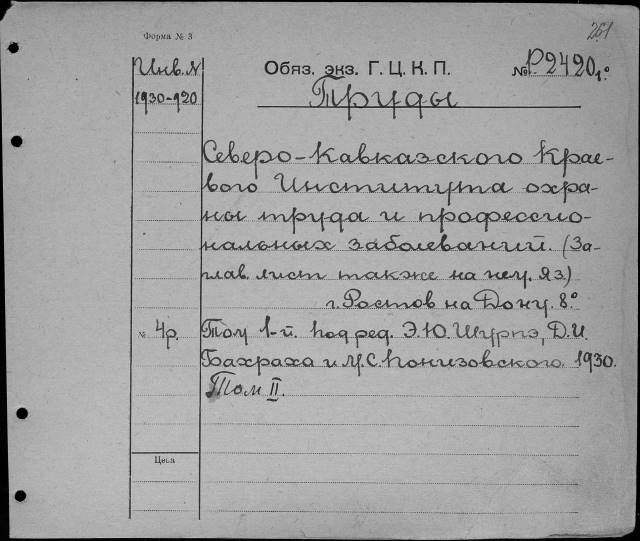 261
Форма № 3
Инв. №
Обяз. экз. Г. Ц. К. П.
№ Р. 2420 1°
1930-920
Труды
Северо-Кавказского Крае-
вого Института охра-
ны труда и профессио-
нальных заболеваний. (За-
глав. лист также на нем. яз.)
г. Ростов на Дону. 8°
№ 4р.
Том 1-й. Под ред. Э. Ю. Шурпэ, Д. И.
Бахраха и М. С. Понизовского. 1930.
Том II.
Цена